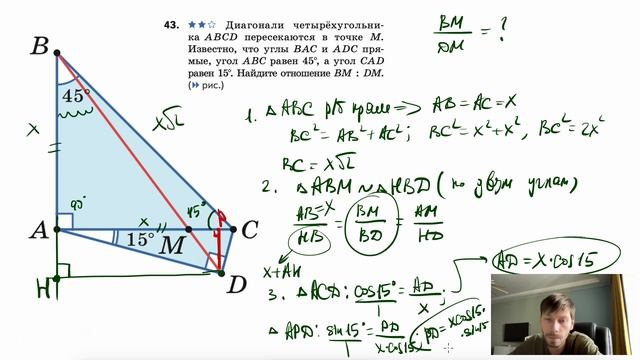 43. ★★☆ Диагонали четырёхугольни-
ка ABCD пересекаются в точке M.
Известно, что углы BAC и ADC пря-
мые, угол ABC равен 45°, а угол CAD
равен 15°. Найдите отношение BM : DM.
(▸▸ рис.)
BM/DM = ?
B
45°
x
x√2
90°
A
x
45°
P
C
15°
M
H
D
1. △ABC р/б прям => AB = AC = x
BC² = AB² + AC²; BC² = x² + x², BC² = 2x²
BC = x√2
2. △ABM ~ △HBD (по двум углам)
AB=x/HB = BM/BD = AM/HD
x+AH
AD = x·cos15
3. △ACD: cos15°/1 = AD/x;
△APD: sin15°/1 = PD/x cos15; PD = x cos15·
·sin15